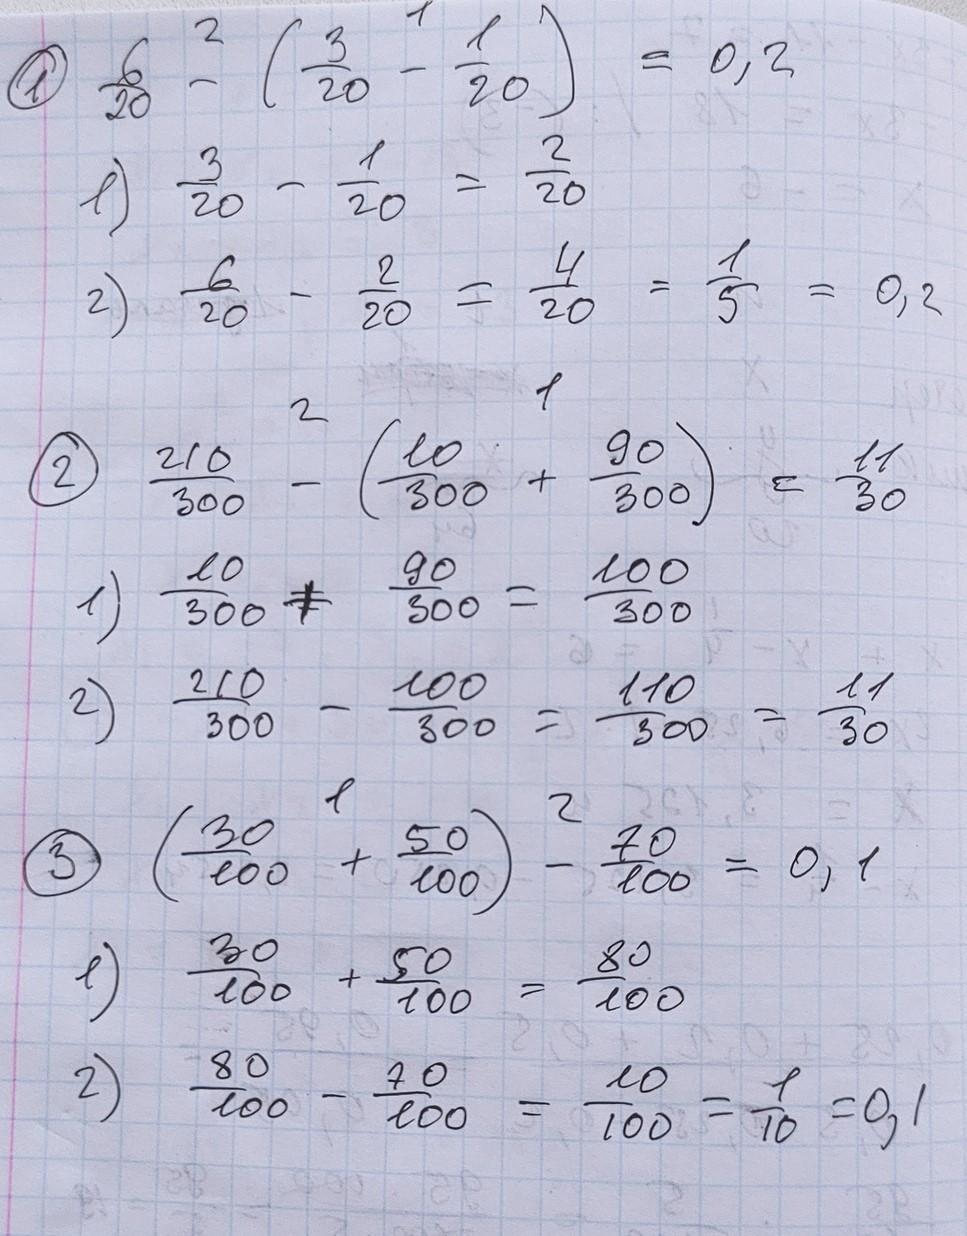 ① 6/20 - (3/20 - 1/20) = 0,2
2 1
1) 3/20 - 1/20 = 2/20
2) 6/20 - 2/20 = 4/20 = 1/5 = 0,2
2 1
② 210/300 - (10/300 + 90/300) = 11/30
1) 10/300 + 90/300 = 100/300
2) 210/300 - 100/300 = 110/300 = 11/30
1 2
③ (30/100 + 50/100) - 70/100 = 0,1
1) 30/100 + 50/100 = 80/100
2) 80/100 - 70/100 = 10/100 = 1/10 = 0,1